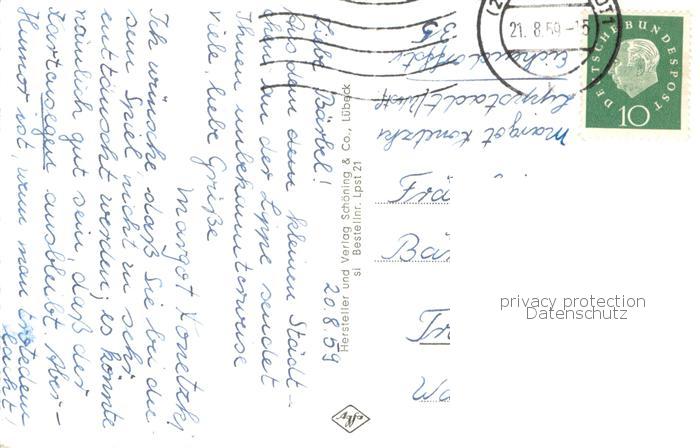 20.8.59
Liebe Bärbel!
Aus dem dem kleinen Städt-
chen an der Lippe sendet
Ihnen unbekannterweise
viele, liebe Grüße
Margot Konetzki
Ich wünsche, daß Sie bei
sem Spiel nicht zu sehr
enttäuscht werden, es könnte
nämlich gut sein, daß der
Kartensegen ausbleibt. Aber
Humor ist, wenn man trotzdem
lacht!
Hersteller und Verlag Schöning & Co., Lübeck
si Bestellnr. Lpst 21
Agfa
Margot Konetzki
Lippstadt/Westf.
35
21.8.59-15
DEUTSCHE BUNDESPOST
10
Frä
Bä
privacy protection
Datenschutz